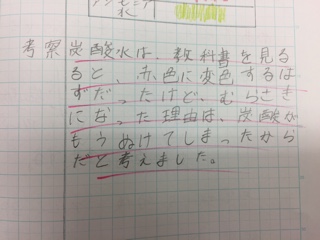 アンモニア
水
考察炭酸水は、教科書を見る
ると、赤色に変色するは
ずだったけど、むらさき
になった理由は、炭酸が
もうぬけてしまったから
だと考えました。